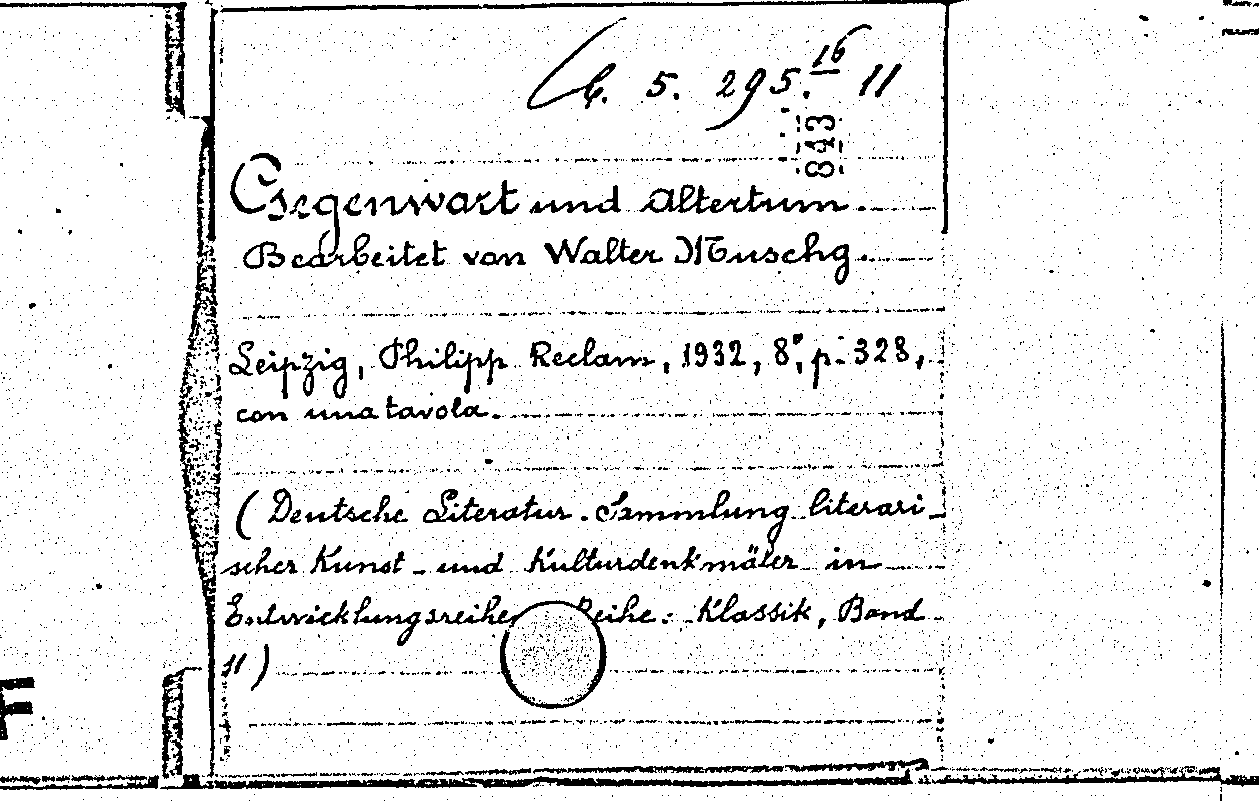 C. 5. 295.16 11
843
Gegenwart und Altertum.
Bearbeitet von Walter Muschg.
Leipzig, Philipp Reclam, 1932, 8°, p. 328,
con una tavola.
(Deutsche Literatur. Sammlung literari-
scher Kunst- und Kulturdenkmäler in
Entwicklungsreihen Reihe: Klassik, Band
11)
F